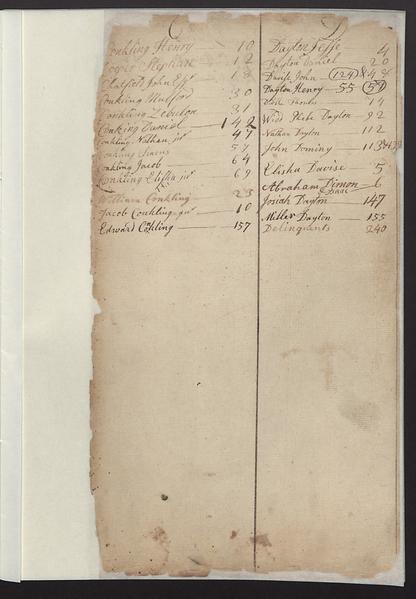 C
Conkling Henry — 10
Cooper Stephen — 12
Chatfield John Esqr — 18
Conkling Mulford — 30
Conkling Zebulon — 31
Conkling Daniel — 142
Conkling, Nathan, jur 47
Conkling — 57
Conkling Jacob — 64
Conkling Elisha jur 69
William Conkling — 23
Jacob Conkling, jur — 10
Edward Conkling — 157
D
Dayton Jesse 4
Dayton Daniel 20
Davis, John — (124) & 48
Dayton Henry — 55 (51)
14
Widw Phebe Dayton 92
Nathan Dayton 112
John Dominy 113
Elisha Davise 5
Abraham Dimon — 6
Isaac
Josiah Dayton — 147
Miller Dayton — 155
Delinquents 240